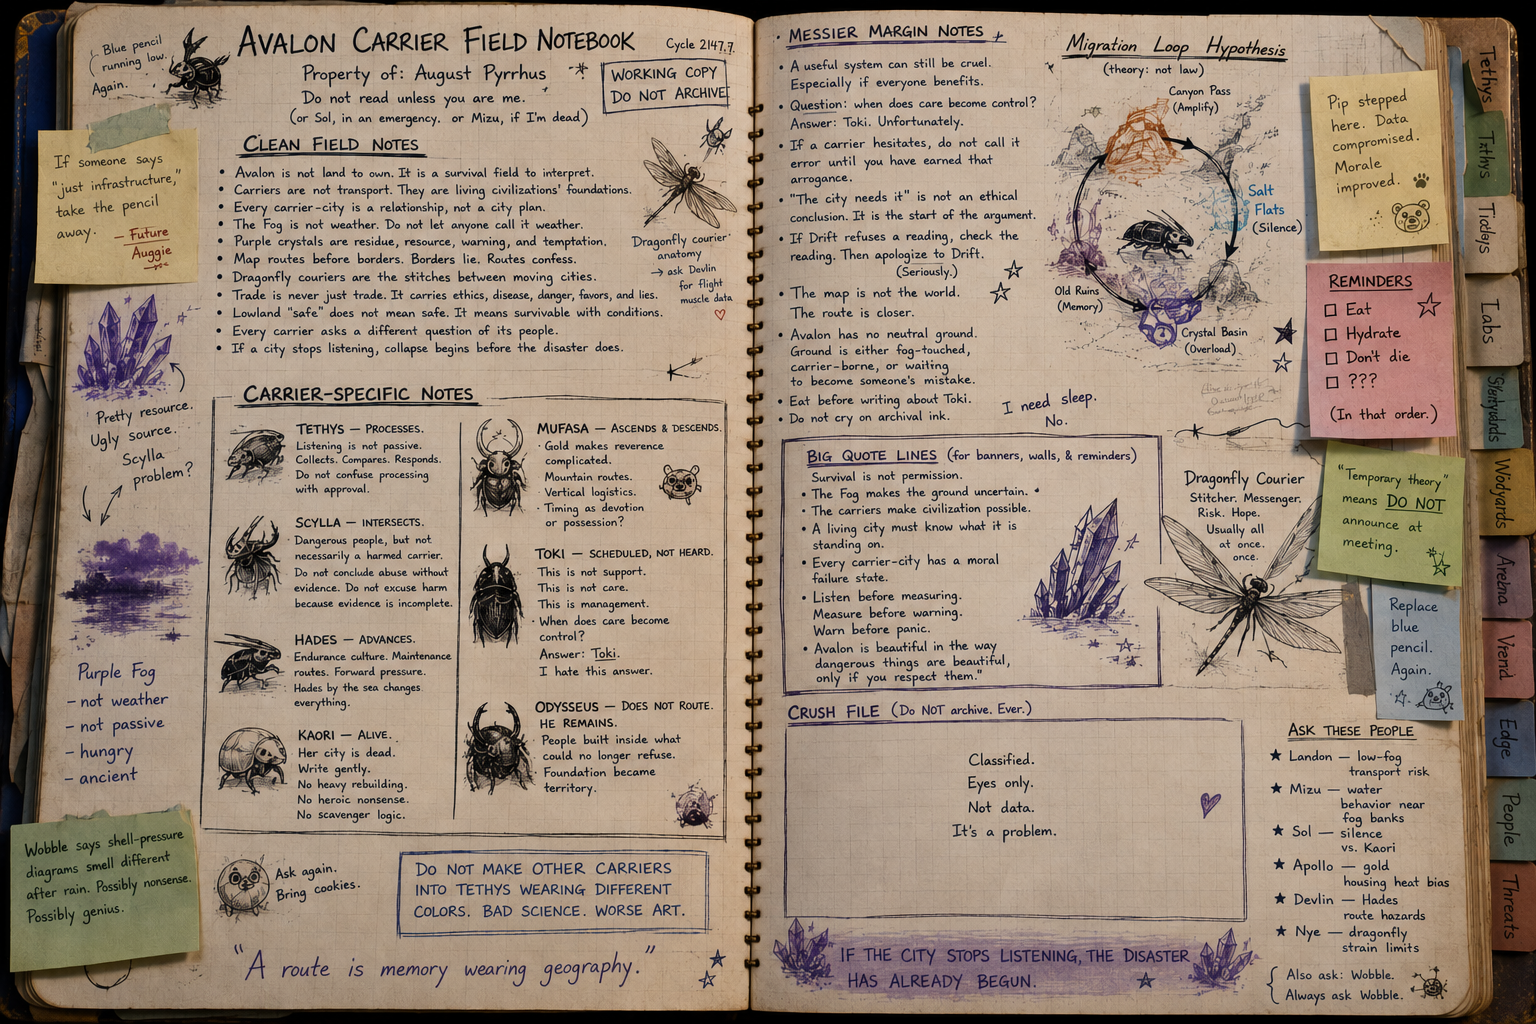 Blue pencil
running low.
Again.
AVALON CARRIER FIELD NOTEBOOK
Cycle 2147.7.
Property of: August Pyrrhus
Do not read unless you are me.
(or Sol, in an emergency. or Mizu, if I'm dead)
WORKING COPY
DO NOT ARCHIVE
If someone says
"just infrastructure,"
take the pencil
away.
— Future
Auggie
CLEAN FIELD NOTES
• Avalon is not land to own. It is a survival field to interpret.
• Carriers are not transport. They are living civilizations' foundations.
• Every carrier-city is a relationship, not a city plan.
• The Fog is not weather. Do not let anyone call it weather.
• Purple crystals are residue, resource, warning, and temptation.
• Map routes before borders. Borders lie. Routes confess.
• Dragonfly couriers are the stitches between moving cities.
• Trade is never just trade. It carries ethics, disease, danger, favors, and lies.
• Lowland "safe" does not mean safe. It means survivable with conditions.
• Every carrier asks a different question of its people.
• If a city stops listening, collapse begins before the disaster does.
Dragonfly courier
anatomy
→ ask Devlin
for flight
muscle data
Pretty resource.
Ugly source.
Scylla
problem?
Purple Fog
– not weather
– not passive
– hungry
– ancient
Wobble says shell-pressure
diagrams smell different
after rain. Possibly nonsense.
Possibly genius.
CARRIER-SPECIFIC NOTES
TETHYS — PROCESSES.
Listening is not passive.
Collects. Compares. Responds.
Do not confuse processing
with approval.
SCYLLA — INTERSECTS.
Dangerous people, but not
necessarily a harmed carrier.
Do not conclude abuse without
evidence. Do not excuse harm
because evidence is incomplete.
HADES — ADVANCES.
Endurance culture. Maintenance
routes. Forward pressure.
Hades by the sea changes
everything.
KAORI — ALIVE.
Her city is dead.
Write gently.
No heavy rebuilding.
No heroic nonsense.
No scavenger logic.
MUFASA — ASCENDS & DESCENDS.
· Gold makes reverence
complicated.
Mountain routes.
Vertical logistics.
· Timing as devotion
or possession?
TOKI — SCHEDULED, NOT HEARD.
This is not support.
This is not care.
This is management.
· When does care become
control?
Answer: Toki.
I hate this answer.
ODYSSEUS — DOES NOT ROUTE.
HE REMAINS.
People built inside what
could no longer refuse.
· Foundation became
territory.
Ask again.
Bring cookies.
DO NOT MAKE OTHER CARRIERS
INTO TETHYS WEARING DIFFERENT
COLORS. BAD SCIENCE. WORSE ART.
"A route is memory wearing geography."
• MESSIER MARGIN NOTES
• A useful system can still be cruel.
Especially if everyone benefits.
• Question: when does care become control?
Answer: Toki. Unfortunately.
• If a carrier hesitates, do not call it
error until you have earned that
arrogance.
• "The city needs it" is not an ethical
conclusion. It is the start of the argument.
• If Drift refuses a reading, check the
reading. Then apologize to Drift.
(Seriously.)
• The map is not the world.
The route is closer.
• Avalon has no neutral ground.
Ground is either fog-touched,
carrier-borne, or waiting
to become someone's mistake.
• Eat before writing about Toki.
• Do not cry on archival ink.
I need sleep.
No.
Migration Loop Hypothesis
(theory: not law)
Canyon Pass
(Amplify)
Salt
Flats
(Silence)
Old Ruins
(Memory)
Crystal Basin
(Overload)
BIG QUOTE LINES (for banners, walls, & reminders)
Survival is not permission.
• The Fog makes the ground uncertain.
• The carriers make civilization possible.
• A living city must know what it is
standing on.
• Every carrier-city has a moral
failure state.
• Listen before measuring.
Measure before warning.
Warn before panic.
• Avalon is beautiful in the way
dangerous things are beautiful,
only if you respect them."
Dragonfly Courier
Stitcher. Messenger.
Risk. Hope.
Usually all
at once.
once.
CRUSH FILE (Do NOT archive. Ever.)
Classified.
Eyes only.
Not data.
It's a problem.
IF THE CITY STOPS LISTENING, THE DISASTER
HAS ALREADY BEGUN.
Pip stepped
here. Data
compromised.
Morale
improved.
REMINDERS
Eat
Hydrate
Don't die
???
(In that order.)
"Temporary theory"
means DO NOT
announce at
meeting.
Replace
blue
pencil.
Again.
ASK THESE PEOPLE
★ Landon — low-fog
transport risk
★ Mizu — water
behavior near
fog banks
★ Sol — silence
vs. Kaori
★ Apollo — gold
housing heat bias
★ Devlin — Hades
route hazards
★ Nye — dragonfly
strain limits
Also ask: Wobble.
Always ask Wobble.
Tethys
Labs
Edge
People
Threats